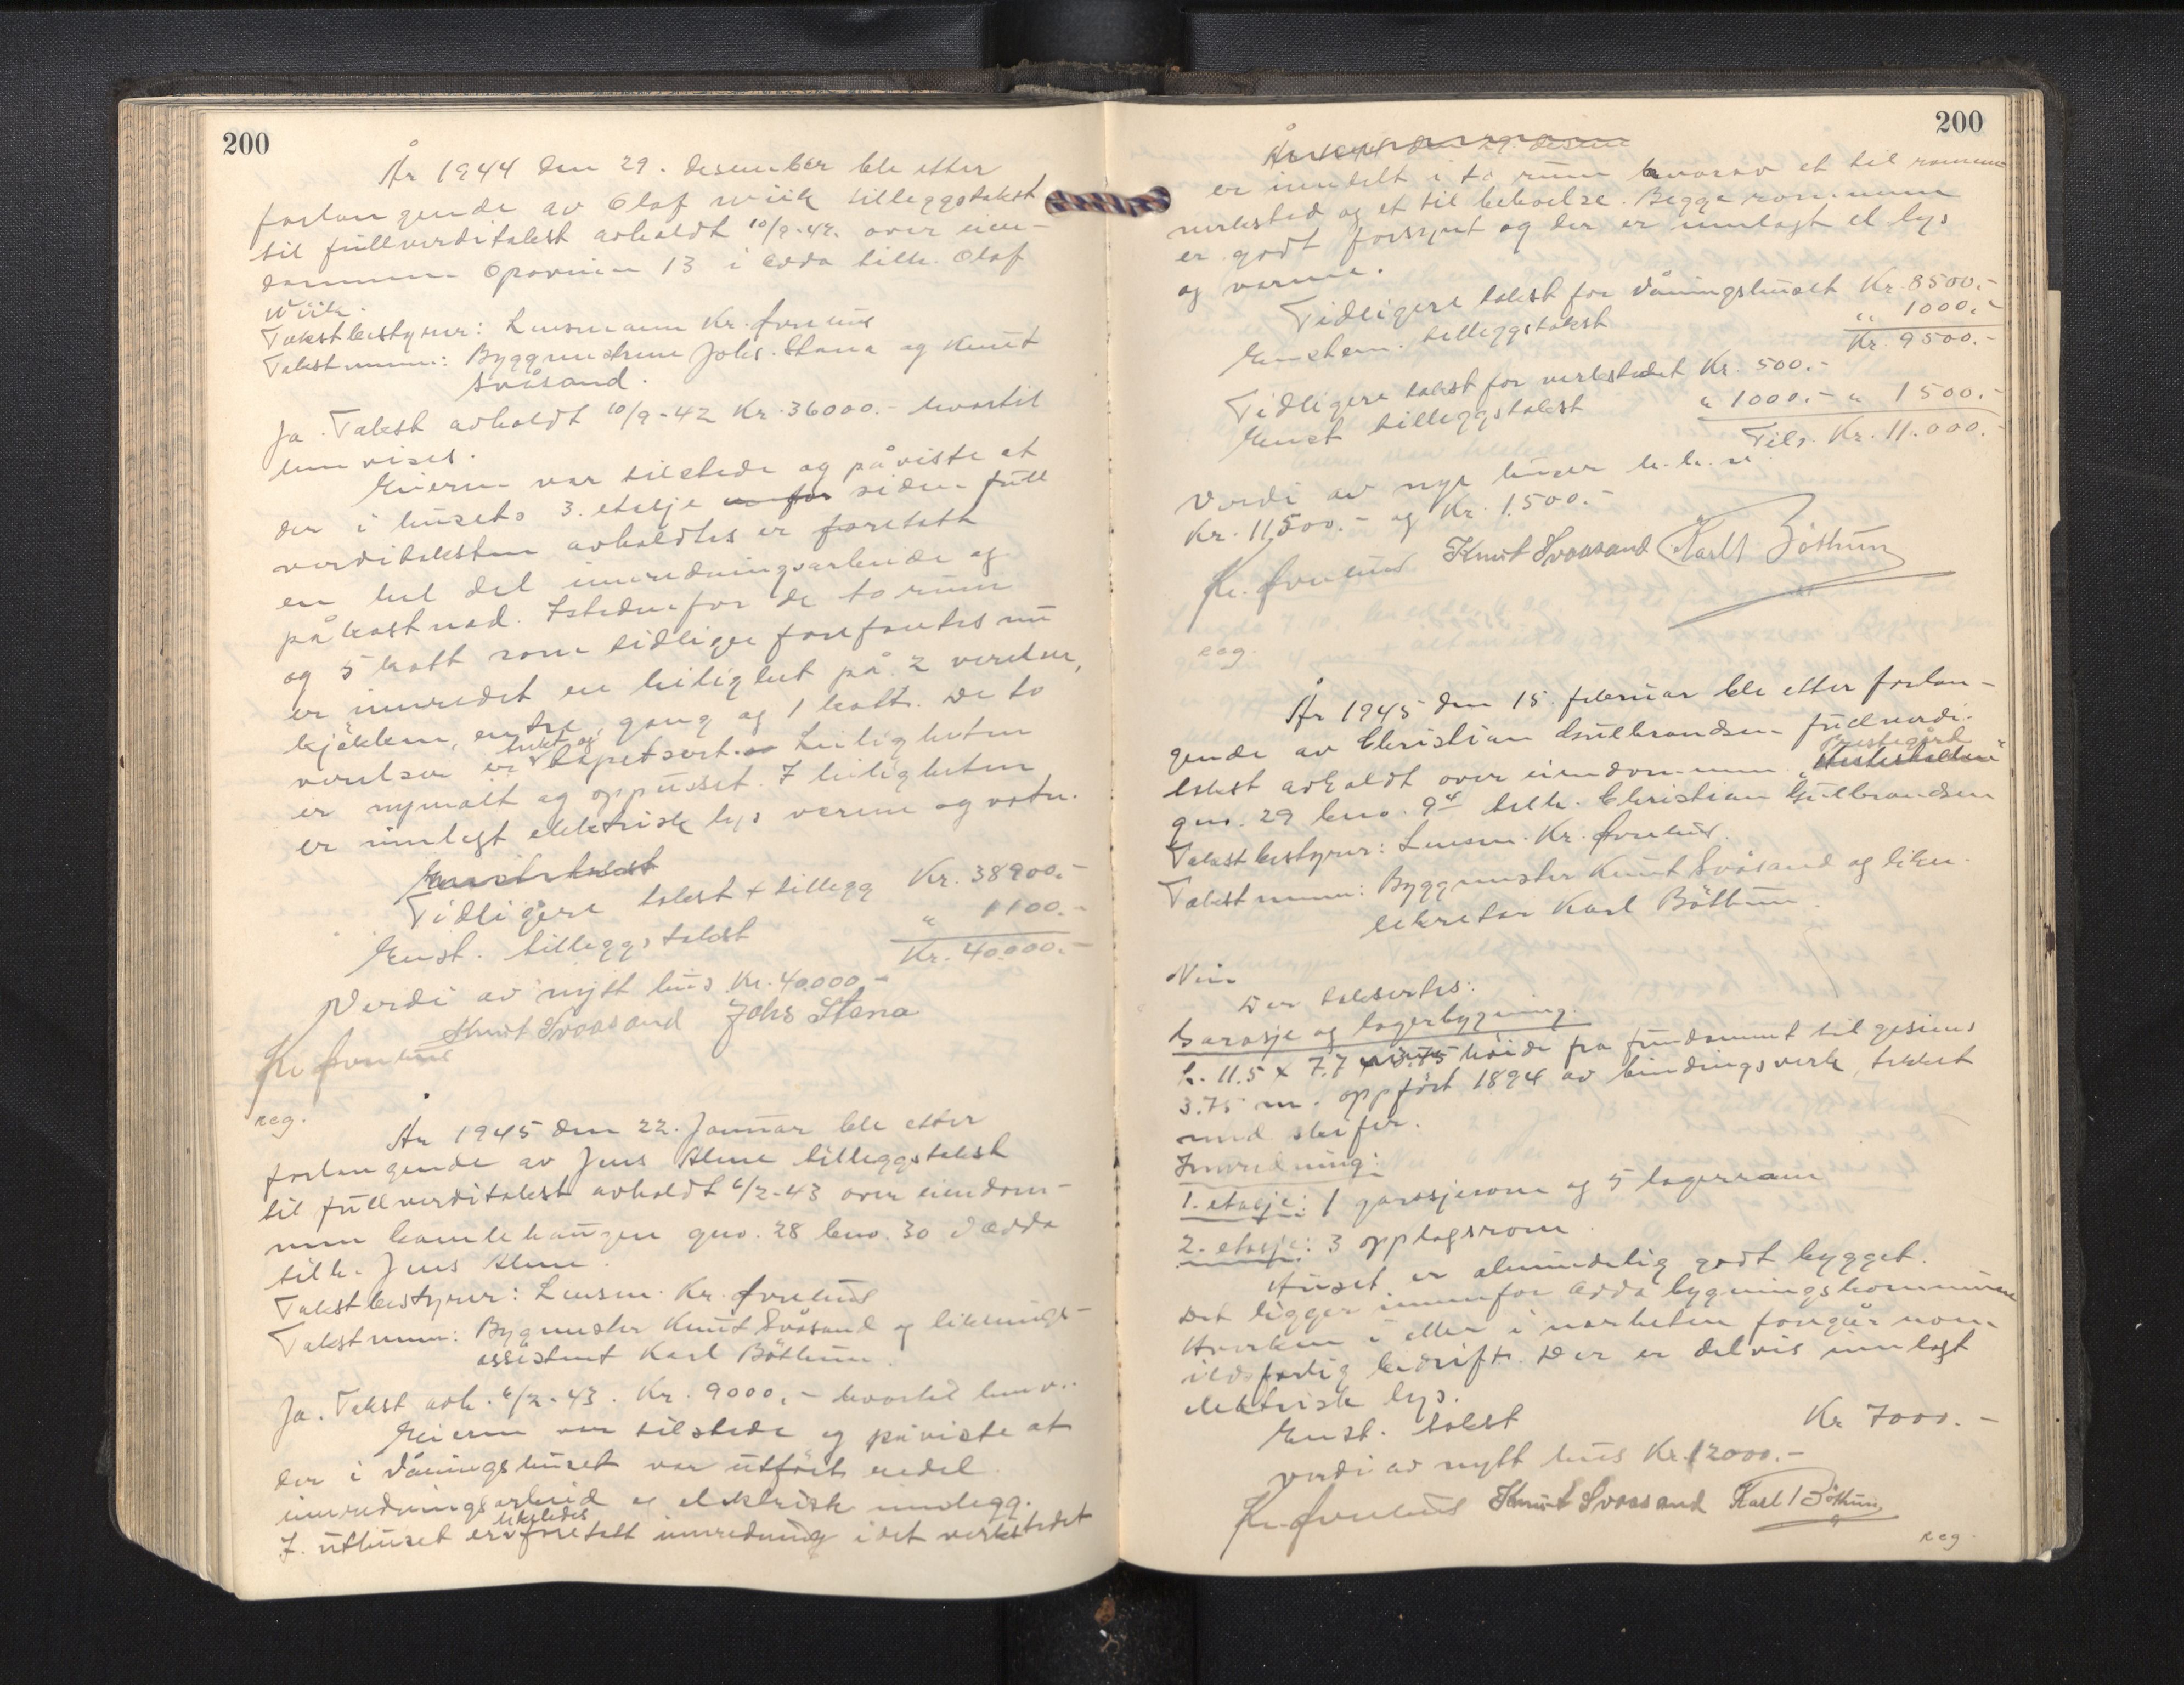 200
År 1944 den 29. desember ble etter
forlangende av Olaf Wiik tilleggstakst
til fullverditakst avholdt 10/9-42. over eien-
dommen Opoveien 13 i Odda tilh. Olaf
Wiik.
Takstbestyrer: Lensmann Kr.
Takstmenn: Byggmestrene Johs. Stana og Knut
Svåsand.
Ja. Takst avholdt 10/9-42 Kr. 36000.- hvortil
henvises.
Eieren var tilstede og påviste at
der i husets 3. etasje siden full
verditaksten avholdtes er foretatt
en hel del innredningsarbeide og
påkostnad. Istedenfor de to rum
og 5 kott som tidligere forefantes nu
er innredet en leilighet på 2 værelser,
kjøkken, entre, gang og 1 kott. De to
værelser er trukket og tapetsert. Leiligheten
er nymalt og oppusset. I leiligheten
er innlagt elektrisk lys varme og vatn.
Enst. takst
Tidligere takst + tillegg Kr. 38900.-
Enst. tilleggstakst " 1100.-
Kr. 40.000.-
Verdi av nytt hus Kr. 40.000.-
Knut Svaasand Johs Stana
Kr
reg.
År 1945 den 22. Januar ble etter
forlangende av Jens Alme tilleggstakst
til fullverditakst avholdt 6/2-43 over eiendom-
men haugen gno. 28 bno. 30 i Odda
tilh. Jens Alme.
Takstbestyrer: Lensm. Kr.
Takstmenn: Bygmester Knut Svåsand og liknings-
assistent Karl Bøthun.
Ja. Takst avh. 6/2-43. Kr. 9000.- hvortil henv.
Eieren var tilstede og påviste at
der i våningshuset var utført endel
innredningsarbeid og elektrisk innlegg.
I uthuset er likeledes foretatt innredning i det verkstedet
200
År 1944 den 29. desem
er inndelt i to rum hvorav et til
verksted og et til beboelse. Begge rommene
er godt forsynt og der er innlagt el lys
og varme.
Tidligere takst for våningshuset Kr. 8500.-
Enstem. tilleggstakst " 1000.-
Kr. 9500.-
Tidligere takst for verkstedet Kr. 500.-
Enst tilleggstakst " 1000.- " 1500.-
Tils. Kr. 11.000.-
Verdi av nye huser h.h.v.
Kr. 11.500.- og Kr. 1.500.-
Kr. Knut Svaasand Karl Bøthun
reg.
År 1945 den 15. februar ble etter forlan-
gende av Christian Gulbrandsen fullverdi-
Prestegård
takst avholdt over eiendommen
gno. 29 bno. 9 tilh. Christian Gulbrandsen
Takstbestyrer: Lensm. Kr.
Takstmenn: Byggmester Knut Svåsand og likn.
sekretær Karl Bøthun.
Nei
Der takseredes:
Garasje og lagerbygning.
L. 11.5 x 7.7 høide fra fundament til gesims
3.75 m. oppført 1894 av bindingsverk, tekket
med skifer.
Innredning:
1. etasje: 1 garasjerom og 5 lagerrom
2. etasje: 3 opplagsrom.
Huset er almindelig godt bygget.
Det ligger innenfor Odda bygningskommune
Hverken i eller i nærheten foregår noen
ildsfarlig bedrift. Der er delvis innlagt
elektrisk lys.
Enst. takst Kr 7000.-
verdi av nytt hus Kr. 12000.-
Kr. Knut Svaasand Karl Bøthun
reg.